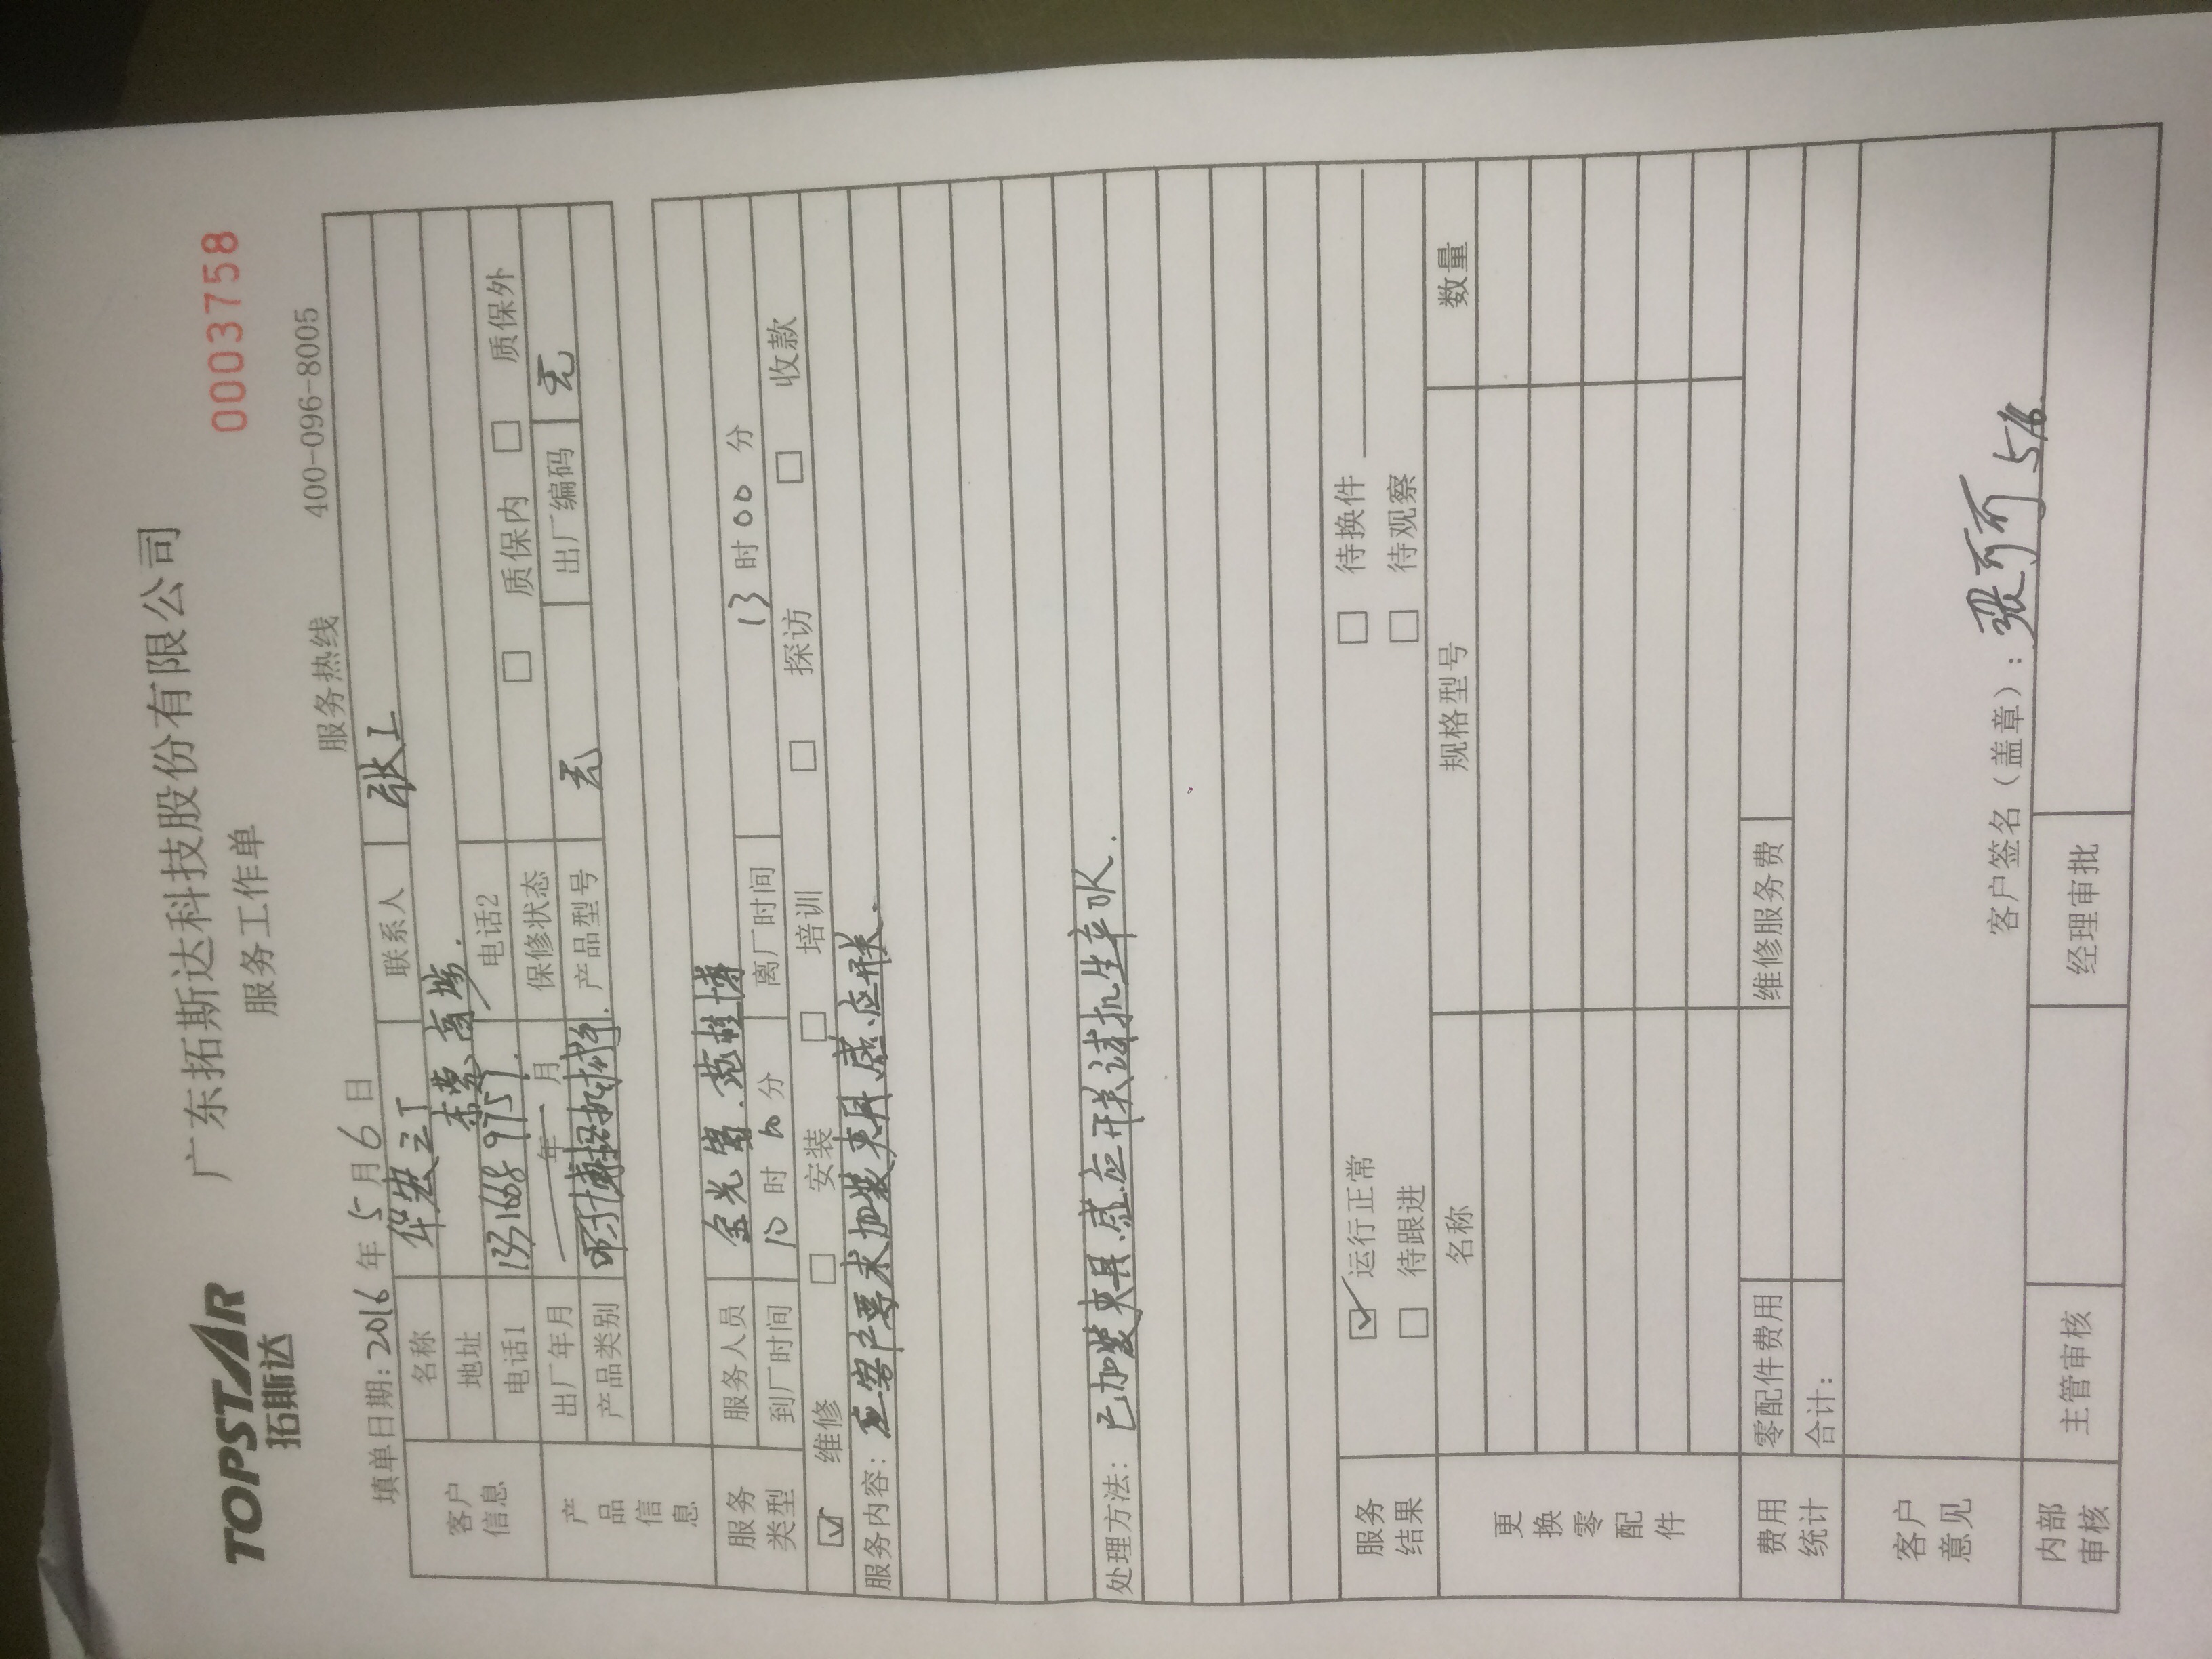 TOPSTAR
拓斯达
广东拓斯达科技股份有限公司
服务工作单
0003758
填单日期: 2016 年 5 月 6 日 服务热线 400-096-8005
客户信息 名称 华宏三工 联系人 张工
地址 东莞、高埗.
电话1 13316689757. 电话2
产品信息 出厂年月 年 月 保修状态 □ 质保内 □ 质保外
产品类别 产品型号 无 出厂编码 无
服务类型 服务人员 金光 范桂博
到厂时间 10 时 00 分 离厂时间 13 时 00 分
☑ 维修 □ 安装 □ 培训 □ 探访 □ 收款
服务内容: 应客户要求加装夹具感应形状.
处理方法: 已加装夹具.感应形状
服务结果 ☑ 运行正常 □ 待换件
□ 待跟进 □ 待观察
更换零配件 名称 规格型号 数量
费用统计 零配件费用 维修服务费
合计:
客户意见
客户签名(盖章): 张 5/6.
内部审核 主管审核 经理审批